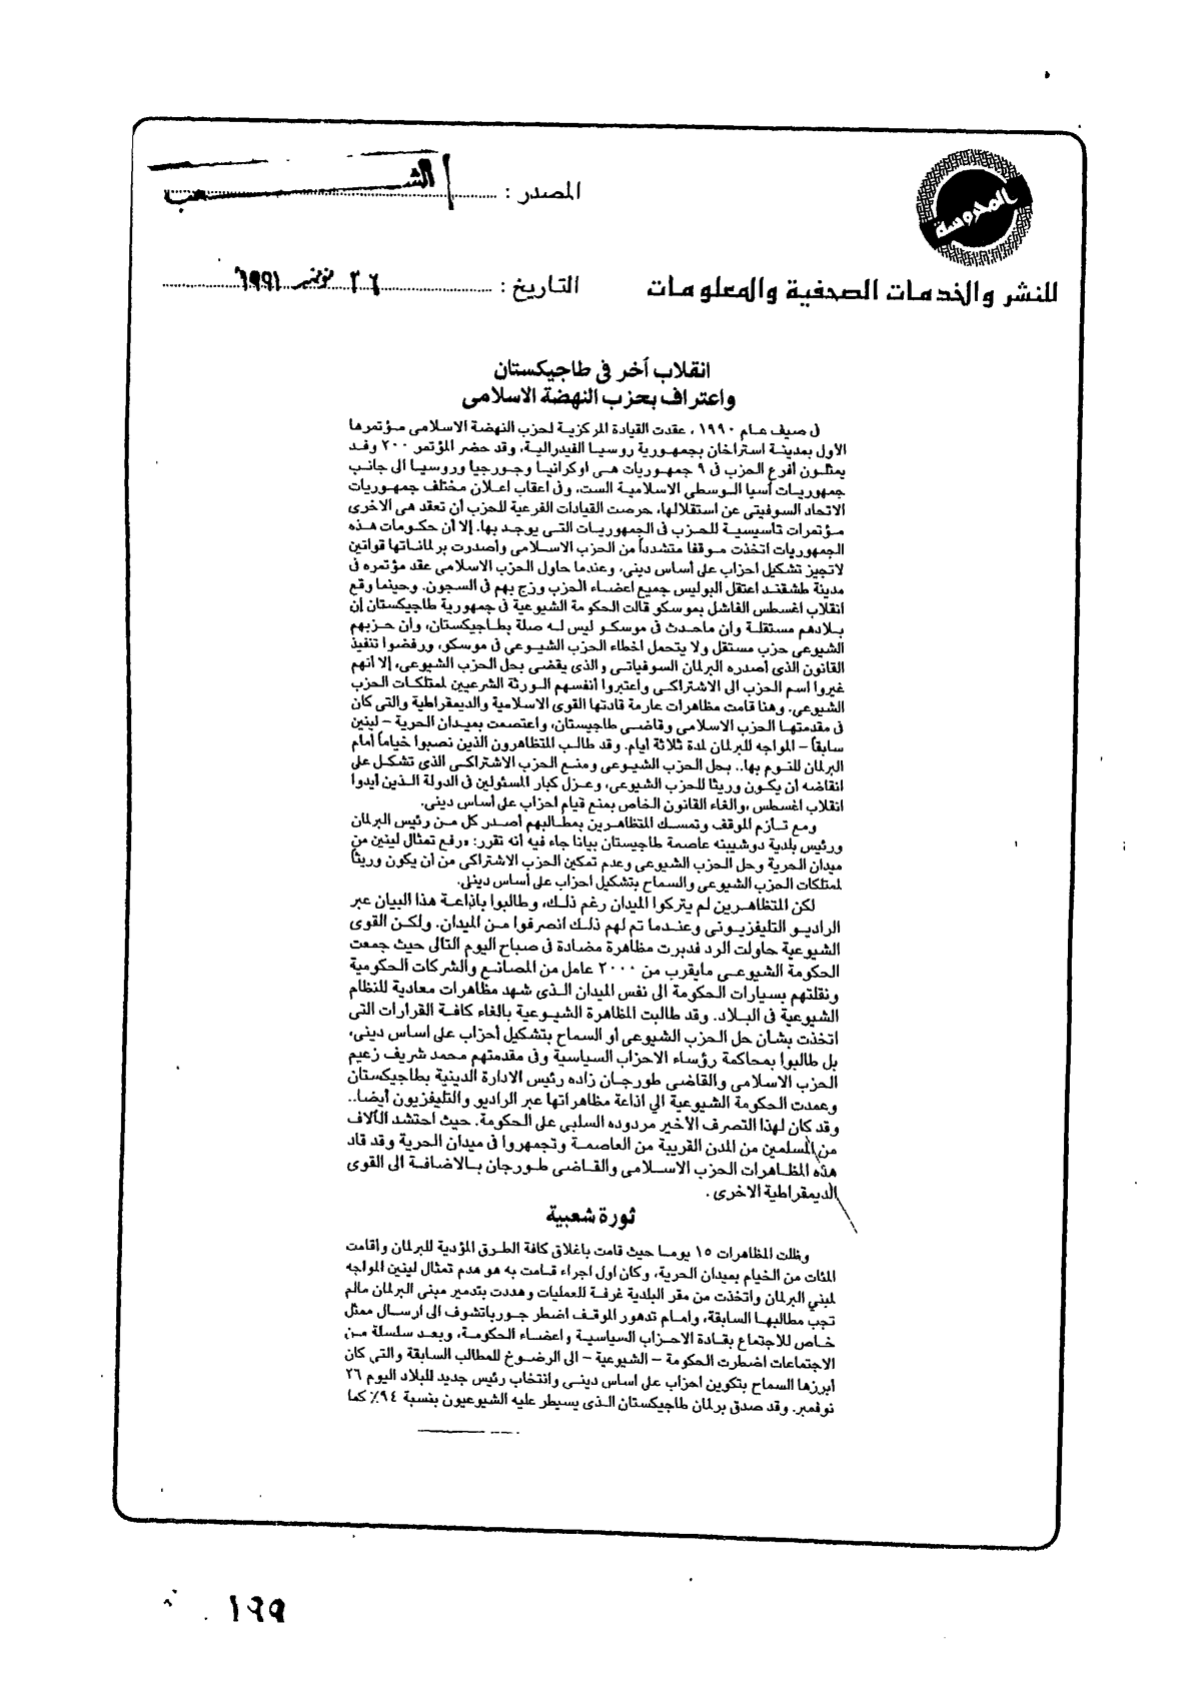 المحروسة
المصدر : الشعب
للنشر والخدمات الصحفية والمعلومات
التاريخ : ٢٦ نوفمبر ١٩٩١
انقلاب آخر فى طاجيكستان
واعتراف بحزب النهضة الاسلامى
فى صيف عام ١٩٩٠ ، عقدت القيادة المركزية لحزب النهضة الاسلامى مؤتمرها
الاول بمدينة استراخان بجمهورية روسيا الفيدرالية، وقد حضر المؤتمر ٢٠٠ وفد
يمثلون أفرع الحزب فى ٩ جمهوريات هى اوكرانيا وجورجيا وروسيا الى جانب
جمهوريات آسيا الوسطى الاسلامية الست، وفى اعقاب اعلان مختلف جمهوريات
الاتحاد السوفيتى عن استقلالها، حرصت القيادات الفرعية للحزب أن تعقد هى الاخرى
مؤتمرات تأسيسية للحزب فى الجمهوريات التى يوجد بها. إلا أن حكومات هذه
الجمهوريات اتخذت موقفا متشدداً من الحزب الاسلامى وأصدرت برلماناتها قوانين
لاتجيز تشكيل احزاب على أساس دينى، وعندما حاول الحزب الاسلامى عقد مؤتمره فى
مدينة طشقند اعتقل البوليس جميع اعضاء الحزب وزج بهم فى السجون. وحينما وقع
انقلاب اغسطس الفاشل بموسكو قالت الحكومة الشيوعية فى جمهورية طاجيكستان إن
بلادهم مستقلة وان ماحدث فى موسكو ليس له صلة بطاجيكستان، وان حزبهم
الشيوعى حزب مستقل ولا يتحمل اخطاء الحزب الشيوعى فى موسكو، ورفضوا تنفيذ
القانون الذى أصدره البرلمان السوفياتى والذى يقضى بحل الحزب الشيوعى، إلا أنهم
غيروا اسم الحزب الى الاشتراكى واعتبروا أنفسهم الورثة الشرعيين لممتلكات الحزب
الشيوعى. وهنا قامت مظاهرات عارمة قادتها القوى الاسلامية والديمقراطية والتى كان
فى مقدمتها الحزب الاسلامى وقاضى طاجيستان، واعتصمت بميدان الحرية – لينين
سابقاً – المواجه للبرلمان لمدة ثلاثة أيام. وقد طالب المتظاهرون الذين نصبوا خياماً أمام
البرلمان للنوم بها.. بحل الحزب الشيوعى ومنع الحزب الاشتراكى الذى تشكل على
انقاضه أن يكون وريثا للحزب الشيوعى، وعزل كبار المسئولين فى الدولة الذين أيدوا
انقلاب اغسطس ،والغاء القانون الخاص بمنع قيام احزاب على أساس دينى.
ومع تأزم الموقف وتمسك المتظاهرين بمطالبهم أصدر كل من رئيس البرلمان
ورئيس بلدية دوشيبنه عاصمة طاجيستان بيانا جاء فيه أنه تقرر: «رفع تمثال لينين من
ميدان الحرية وحل الحزب الشيوعى وعدم تمكين الحزب الاشتراكى من أن يكون وريثاً
لممتلكات الحزب الشيوعى والسماح بتشكيل احزاب على أساس دينى.
لكن المتظاهرين لم يتركوا الميدان رغم ذلك، وطالبوا باذاعة هذا البيان عبر
الراديو التليفزيونى وعندما تم لهم ذلك انصرفوا من الميدان. ولكن القوى
الشيوعية حاولت الرد فدبرت مظاهرة مضادة فى صباح اليوم التالى حيث جمعت
الحكومة الشيوعى مايقرب من ٢٠٠٠ عامل من المصانع والشركات الحكومية
ونقلتهم بسيارات الحكومة الى نفس الميدان الذى شهد مظاهرات معادية للنظام
الشيوعية فى البلاد. وقد طالبت المظاهرة الشيوعية بالغاء كافة القرارات التى
اتخذت بشأن حل الحزب الشيوعى أو السماح بتشكيل أحزاب على اساس دينى،
بل طالبوا بمحاكمة رؤساء الاحزاب السياسية وفى مقدمتهم محمد شريف زعيم
الحزب الاسلامى والقاضى طورجان زاده رئيس الادارة الدينية بطاجيكستان
وعمدت الحكومة الشيوعية الى اذاعة مظاهراتها عبر الراديو والتليفزيون أيضا..
وقد كان لهذا التصرف الأخير مردوده السلبى على الحكومة. حيث احتشد الآلاف
من المسلمين من المدن القريبة من العاصمة وتجمهروا فى ميدان الحرية وقد قاد
هذه المظاهرات الحزب الاسلامى والقاضى طورجان بالاضافة الى القوى
الديمقراطية الاخرى .
ثورة شعبية
وظلت المظاهرات ١٥ يوما حيث قامت باغلاق كافة الطرق المؤدية للبرلمان واقامت
المئات من الخيام بميدان الحرية، وكان اول اجراء قامت به هو هدم تمثال لينين المواجه
لمبنى البرلمان واتخذت من مقر البلدية غرفة للعمليات وهددت بتدمير مبنى البرلمان مالم
تجب مطالبها السابقة، وامام تدهور الموقف اضطر جورباتشوف الى ارسال ممثل
خاص للاجتماع بقادة الاحزاب السياسية واعضاء الحكومة، وبعد سلسلة من
الاجتماعات اضطرت الحكومة – الشيوعية – الى الرضوخ للمطالب السابقة والتى كان
أبرزها السماح بتكوين احزاب على اساس دينى وانتخاب رئيس جديد للبلاد اليوم ٢٦
نوفمبر. وقد صدق برلمان طاجيكستان الذى يسيطر عليه الشيوعيون بنسبة ٩٤٪ كما
١٩٩